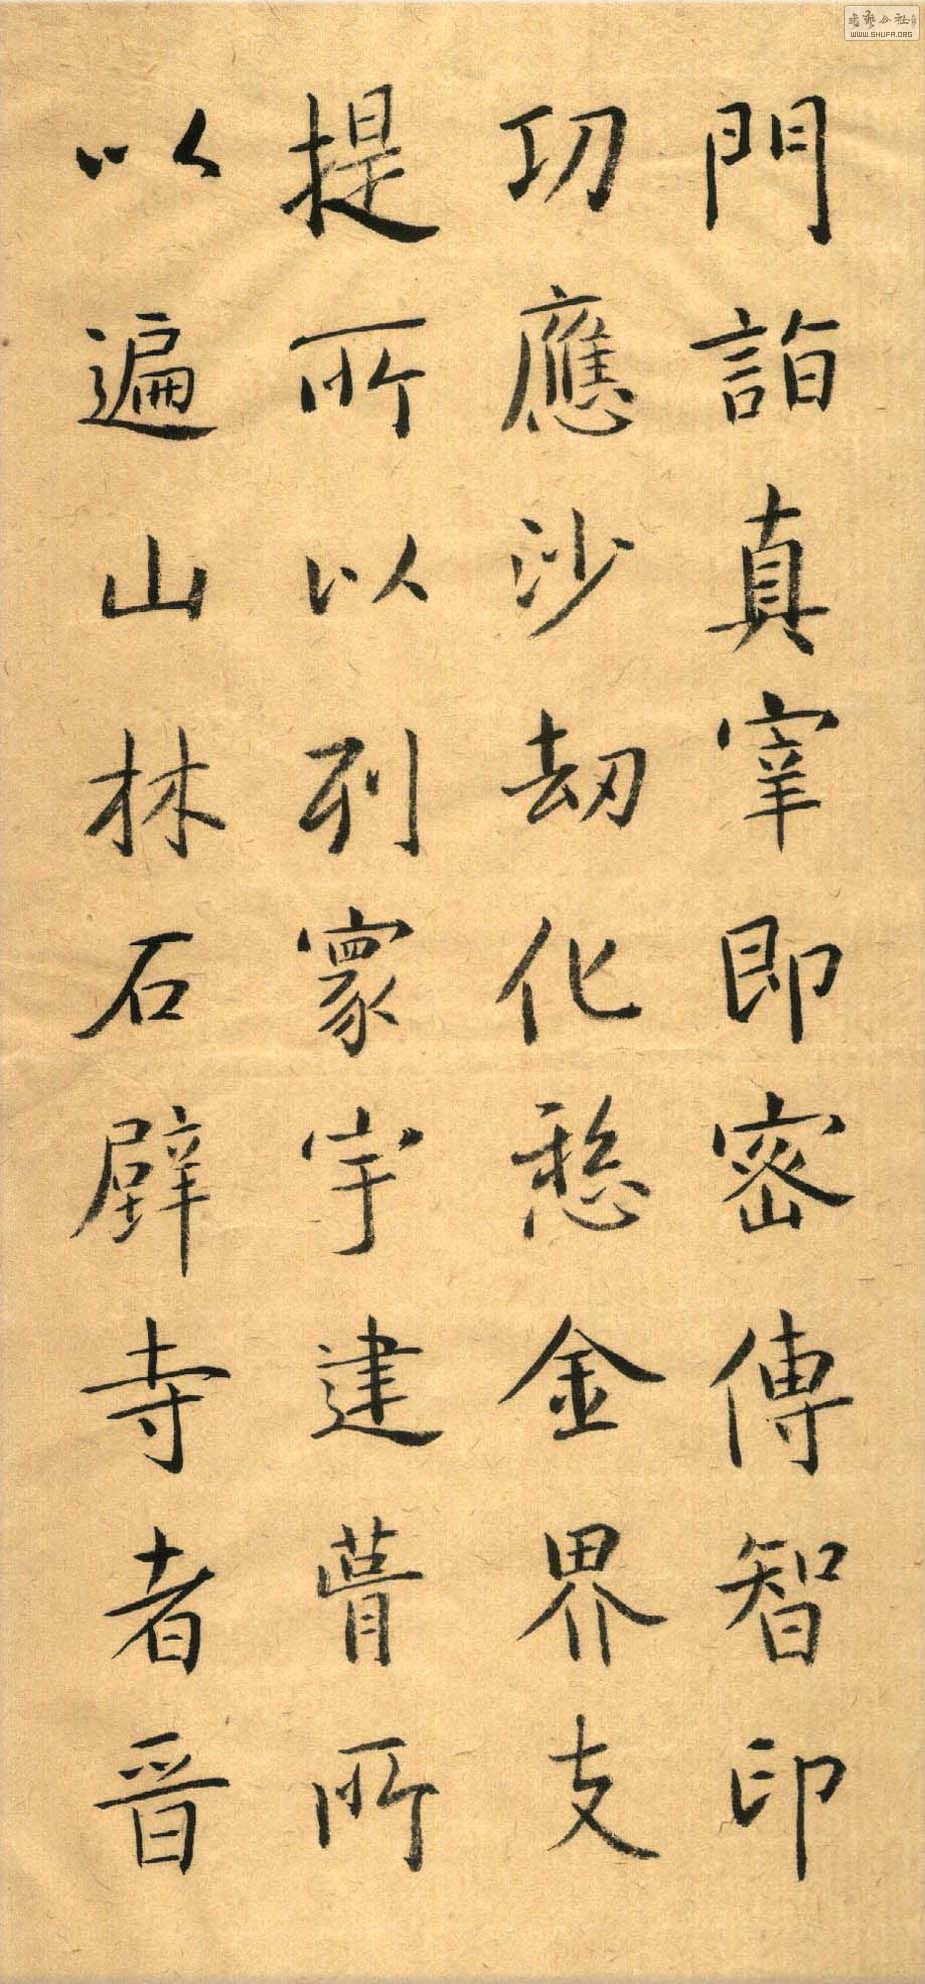 門詣真宰即密傳智印
功應沙劫化愁金界支
提所以列寰宇建瞢所
以遍山林石壁寺者晉
WWW.SHUFA.ORG